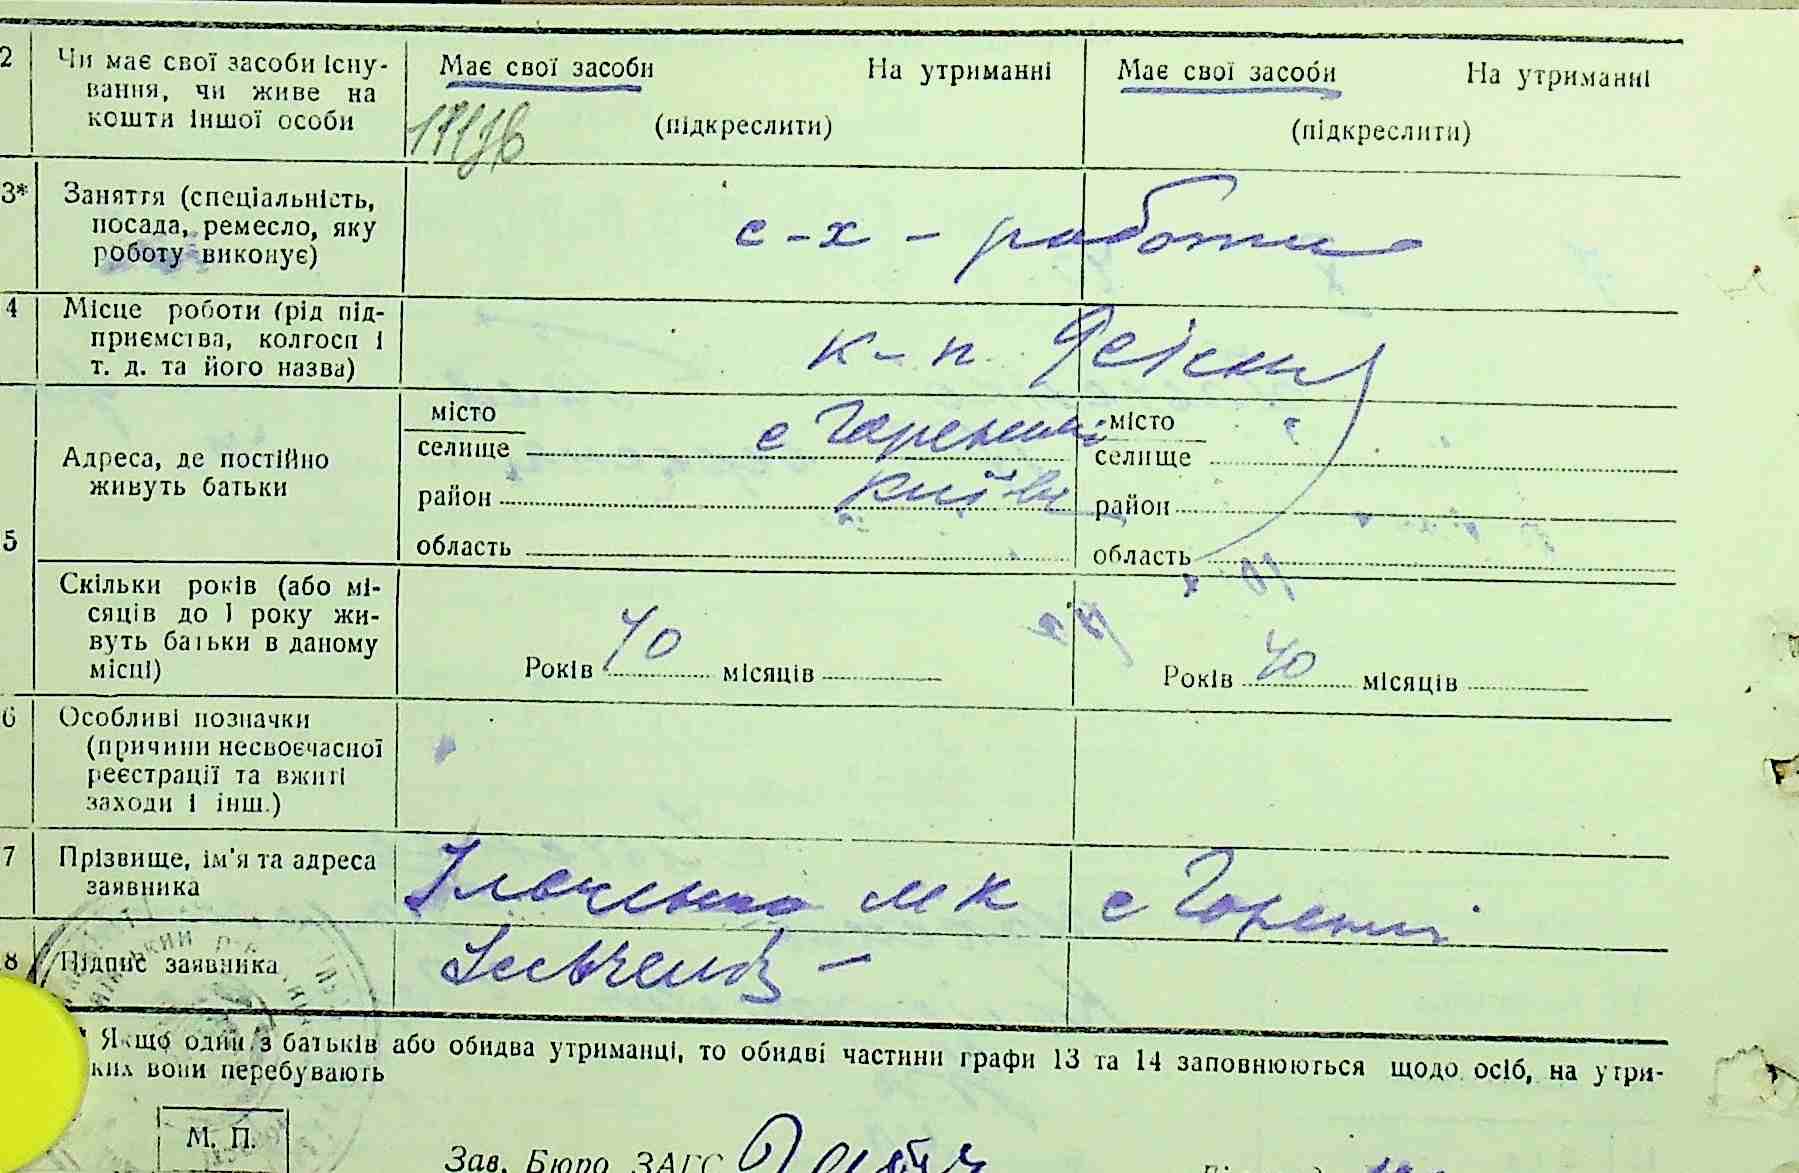 2 Чи має свої засоби існу-
вання, чи живе на
кошти іншої особи
Має свої засоби На утриманні
(підкреслити)
Має свої засоби На утриманні
(підкреслити)
3* Заняття (спеціальність,
посада, ремесло, яку
роботу виконує)
с-х-
4 Місце роботи (рід під-
приємства, колгосп і
т. д. та його назва)
к-п
5 Адреса, де постійно
живуть батьки
місто
селище с Гореничі
район Київ
область
місто
селище
район
область
Скільки років (або мі-
сяців до 1 року жи-
вуть батьки в даному
місці)
Років 40 місяців
Років 40 місяців
6 Особливі позначки
(причини несвоєчасної
реєстрації та вжиті
заходи і інш.)
7 Прізвище, ім'я та адреса
заявника
Ільченко М К с Гореничі
8 Підпис заявника
* Якщо один з батьків або обидва утриманці, то обидві частини графи 13 та 14 заповнюються щодо осіб, на утри-
ких вони перебувають
М. П.
Зав. Бюро ЗАГС